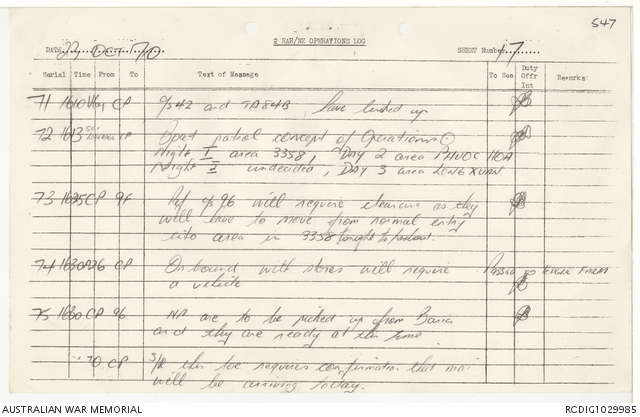 547
2 RAR/NZ OPERATIONS LOG
DATE 23 OCT 70 SHEET Number 17
Serial Time From To Text of Message To See Duty Offr Int Remarks
71 1610 CP and TA84B have linked up
72 1613 CP Boat patrol concept of Operations
Night I area 3358, DAY 2 area PHUOC HOA
Night 2 undecided, DAY 3 area LONG XUAN
73 1625 CP 96 will require clearance as they
will have to move from normal entry
into area in 3358 tonight
74 1630 CP On bound with stores will require Passed to
a vehicle
75 CP 96 NP are to be picked up from Baria
and they are ready at this time
70 CP this loc requires confirmation that
will be arriving today.
AUSTRALIAN WAR MEMORIAL RCDIG1029985